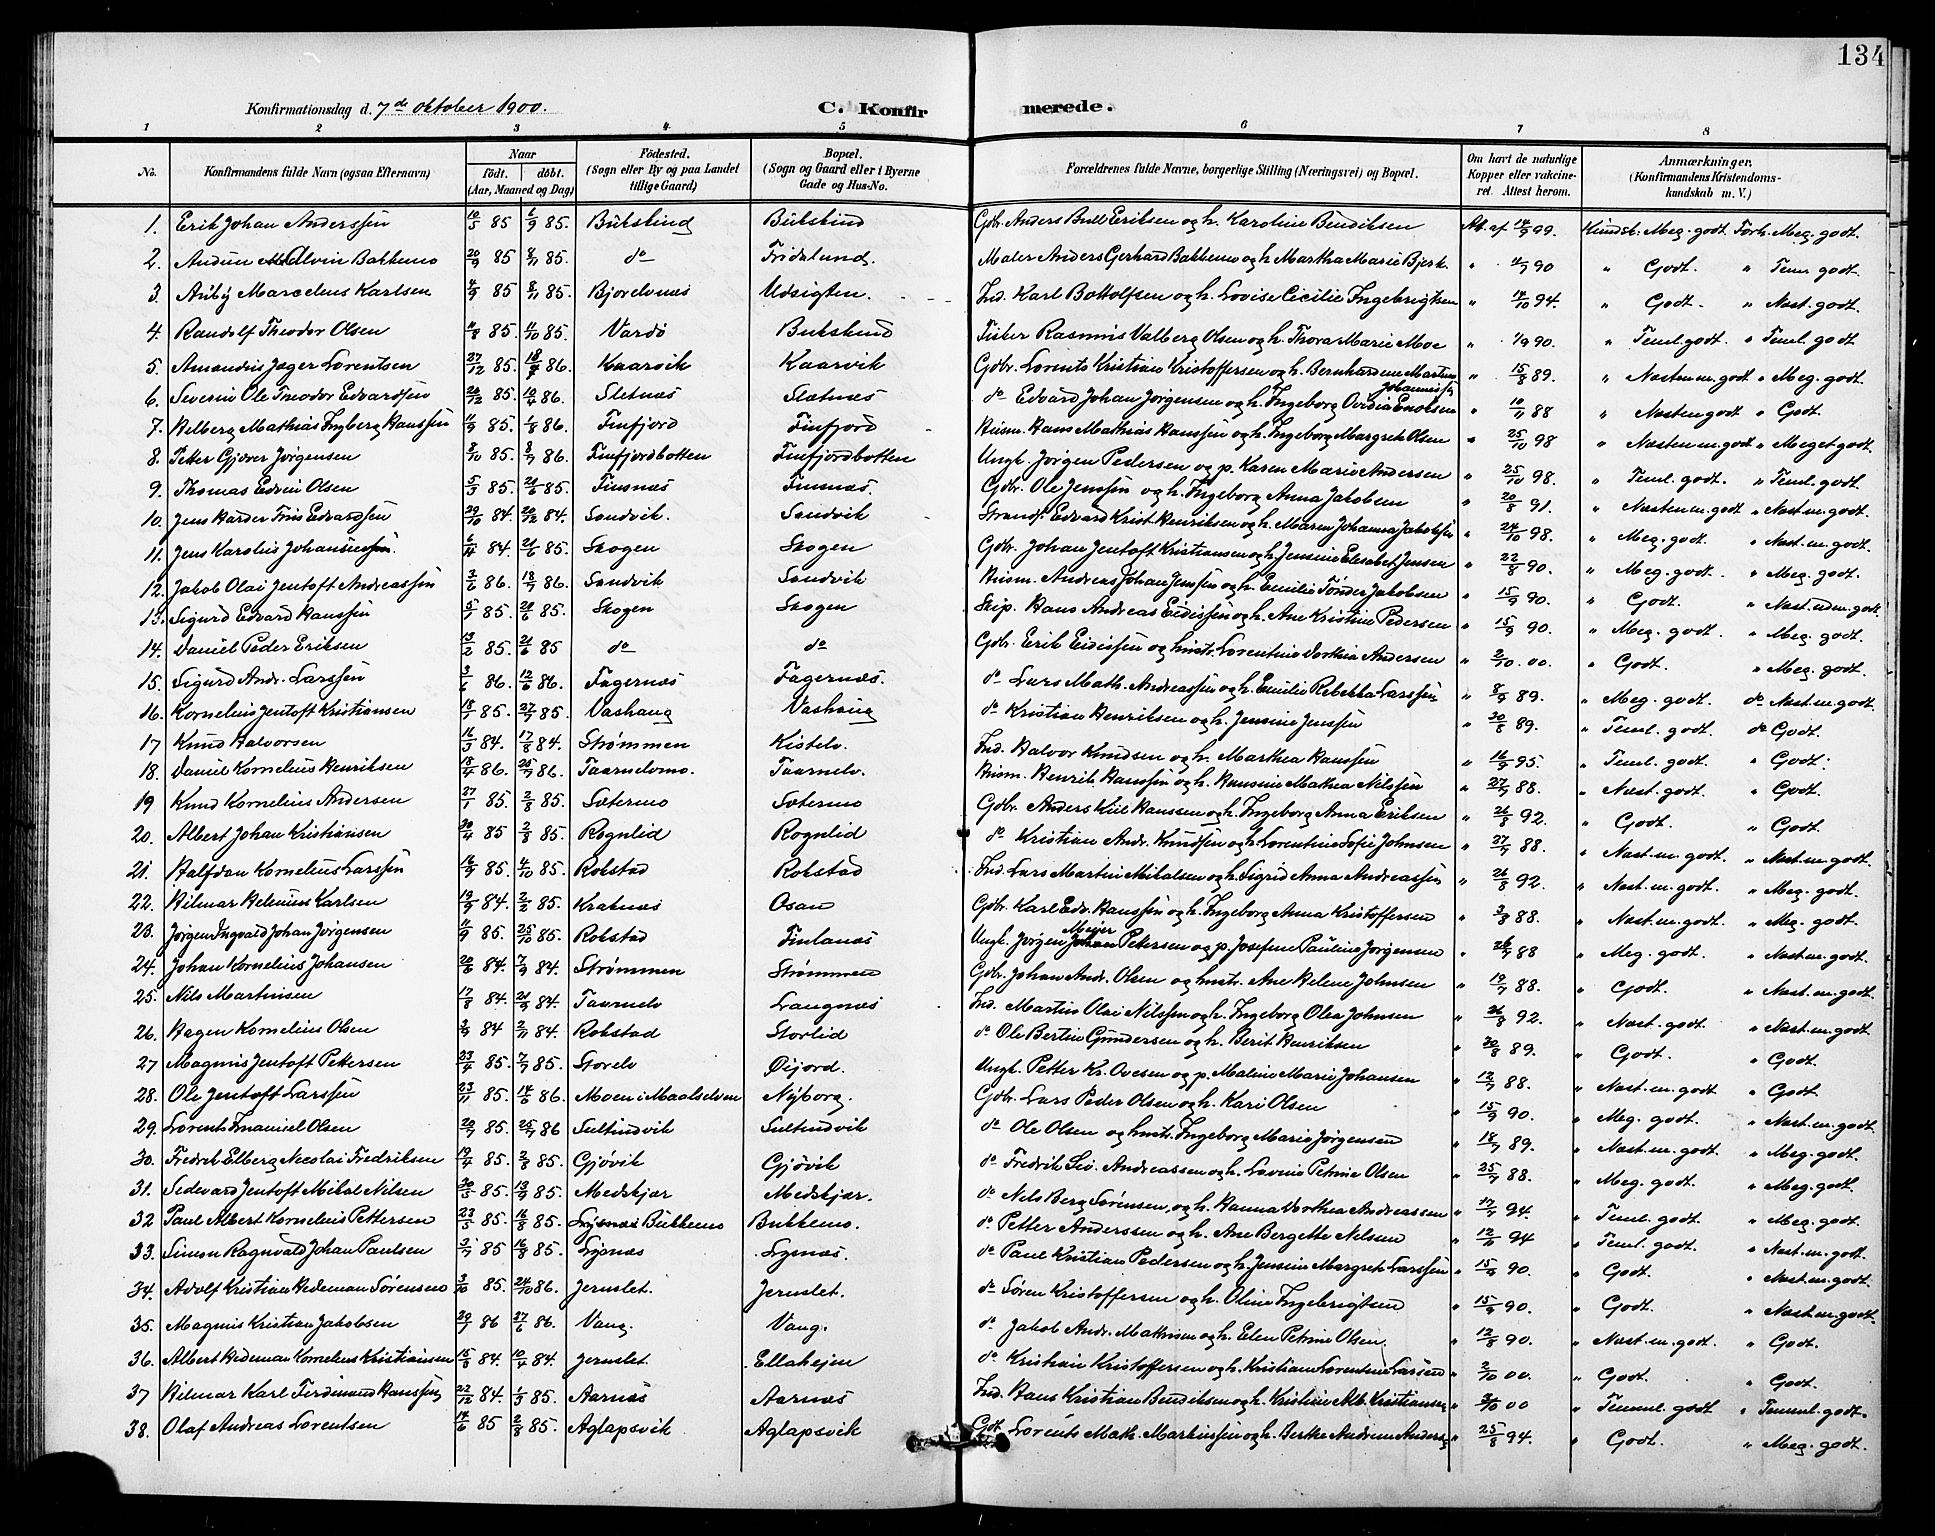 134
Konfirmationsdag d. 7de oktober 1900. C. Konfir merede.
1 2 3 4 5 6 7 8
No. Konfirmandens fulde Navn (ogsaa Efternavn) Naar Födt. döbt. (Aar, Maaned og Dag) Födested. (Sogn eller By og paa Landet tillige Gaard) Bopæl. (Sogn og Gaard eller i Byerne Gade og Hus-No. Forældrenes fulde Navne, borgerlige Stilling (Næringsvei) og Bopæl. Om havt de naturlige Kopper eller vakcineret. Attest herom. Anmærkninger, (Konfirmandens Kristendomskundskab m. V.)
1. Erik Johan Anderssen 10/5 85 6/9 85. Bukskind Bukskind Gbr. Anders Bull Eriksen og h. Karoline Bendiksen At. af 14/9 99. Kundsk. Meg. godt. Forh. Meg. godt.
2. Andun Alvin Bakkemo 20/9 85 8/11 85. do Fridslund. Maler Anders Gerhard Bakkemo og h. Martha Marie Bjerk. " 90 " Godt. " Teml. godt.
3. Anby Marcelius Karlsen 4/9 85 8/11 85. Bjorelvnæs Udsigten. Ind. Karl Bottolfsen og h. Lovise Cecilie Ingebrigtsen " 14/10 94. " Godt. " Nast. godt.
4. Randolf Theodor Olsen 11/8 85. 11/10 85. Vardö Bukskind Fisker Rasmus Valberg Olsen og h. Thora Marie Moe " 1/9 90. " Teml. godt. " Teml. godt.
5. Amandus Jæger Lorentsen 27/12 85. 86. Kaarvik Kaarvik Gdbr. Lorents Kristian Kristoffersen og h. Bernhardine " 15/8 89. " Nasten m. godt " Meg. godt.
6. Severin Ole Theodor Edvardsen 20/12 85. 10/4 86. Sletnæs Slætnæs do Edvard Johan Jørgensen og h. Ingeborg Ovidia Enoksen " 88 " Nasten godt " Godt.
7. Helberg Mathias Ingberg Hanssen 11/9 85. 1/8 86. Finfjord Finfjord Husm. Hans Mathias Hanssen og h. Ingeborg Margrete Olsen " 25/10 98 " Næsten m. godt " Meget godt.
8. Petter Gjæver Jørgensen 8/10 85. 8/7 86. Finfjordbotten Finfjordbotten Ungk. Jørgen Pedersen og p. Karen Marie Andersen " 25/10 98. " Teml. godt. " Teml. godt.
9. Thomas Edvin Olsen 5/3 85. 21/6 85. Finsnæs Finsnæs. Gdbr. Ole Jenssen og h. Ingeborg Anna Jakobsen " 20/8 91. " Nasten m. godt " Nast. m. godt.
10. Jens Harder Friis Edvardsen 29/10 84. 20/12 84. Sandvik. Sandvik Strands. Edvard Krist. Henriksen og h. Maren Johanna Jakobsen " 24/10 98. " Meg. godt " Nast. m. godt.
11. Jens Karolius Johannessen 84. 21/6 85. Skogen Skogen Gdbr. Johan Jentoft Kristiansen og h. Jensine Elesabet Jensen " 22/8 90. " Meg. godt. " Meg. godt.
12. Jakob Olai Jentoft Andreassen 3/6 86. 18/7 86. Sandvik Sandvik Husm. Andreas Johan Jenssen og h. Emilie Tønder Jakobsen " 15/9 90. " Godt. " Nast. udm. godt.
13. Sigurd Edvard Hanssen 5/1 85. 21/6 85. Skogen Skogen Skip. Hans Andreas Eidissen og h. Ane Kristine Pedersen " 15/9 90. " Meg. godt. " Meg. godt.
14. Daniel Peder Eriksen 13/2 85. 21/6 85 do do Gdbr. Erik Eidissen og hustr. Lorentine Dorthia Andersen " 2/10 00. " Godt. " Meg. godt.
15. Sigurd Andr. Larssen 3/6 86. 12/6 86. Fagernæs Fagernæs. do Lars Math. Andreassen og h. Emilie Rebekka Larssen " 8/9 89. " Meg. godt. do Nast. m. godt.
16. Kornelius Jentoft Kristiansen 18/1 85. 27/7 85. Vashaug Vashaug do Kristian Henriksen og h. Jensine Jenssen " 30/8 89. " Teml. godt. do Godt.
17 Knud Halvorsen 16/3 84. 17/8 84. Strømmen Kistelv. Ind. Halvor Knudsen og h. Marthea Hanssen " 16/9 95. " Teml. godt. " Godt.
18. Daniel Kornelius Henriksen 18/4 86. 25/7 86. Taarnelvmo. Taarnelv. Husm. Henrik Hanssen og h. Hansine Mathea Nilssen " 27/7 88. " Nast. godt. " Godt.
19 Knud Kornelius Andersen 27/1 85. 2/8 85. Sætermo Sætermo Gdbr. Anders Kiil Hanssen og h. Ingeborg Anna Eriksen " 26/8 92. " Godt. " Godt.
20. Albert Johan Kristiansen 30/4 85 2/8 85. Rognlid Rognlid do Kristian Andr. Knudsen og h. Lorentine Sofie Johnsen " 27/7 88. " Nast. m. godt. " Nast. m. godt.
21. Halfdan Kornelius Larssen 16/9 85. 4/10 85. Rokstad Rokstad Ind. Lars Martin Mikalsen og h. Sigrid Anna Andreassen " 26/8 92. " Nast. m. godt. " Meg. godt.
22. Hilmar Helenius Karlsen 19/9 84. 2/2 85. Kraknæs Osan Gdbr. Karl Edv. Hanssen og h. Ingeborg Anna Kristoffersen " 3/8 88. " Nast. m. godt. " Meg. godt.
23. Jørgen Ingvald Johan Jørgensen 11/9 85. 25/10 85. Rokstad Finlanæs Ungk. Jørgen Meier Petersen og p. Josefine Pauline Jørgensen " 26/7 88 " Meg. godt. " Nast. m. godt.
24. Johan Kornelius Johansen 20/6 84. 7/9 84. Strømmen Strømmen Gdbr. Johan Andr. Olsen og hustr. Ane Helene Johnsen " 19/7 88. " Godt. " Nast. m. godt.
25. Nils Martinsen 17/8 84. 21/9 84. Taarnelv Langnæs Ind. Martin Olai Nilssen og h. Ingeborg Olea Johnsen " 26/8 92. " Nast. godt. " Nast. m. godt.
26. Hagen Kornelius Olsen 84 2/11 84. Rokstad Storlid do Ole Bertin Gundersen og h. Berit Henriksen " 30/8 89. " Godt. " Godt.
27 Magnus Jentoft Pettersen 23/4 85. 7/7 85. Storelv Öijord. Ungk. Petter Kr. Ovesen og p. Maline Marie Johansen " 12/7 88. " Nast. m. godt " Godt.
28. Ole Jentoft Larssen 23/11 85. 14/6 86. Moen i Maalselven Nyborg. Gdbr. Lars Peder Olsen og h. Kari Olsen " 15/9 90. " Meg. godt. " Nast. m. godt.
29. Lorents Emanuel Olsen 20/7 85. 25/7 86 Sultindvik Sultindvik do Ole Olsen og hustr. Ingeborg Marie Jørgensen " 18/7 89. " Nast. m. godt. " Meg. godt.
30. Fredrik Elberg Nicolai Fredriksen 19/4 85. 2/8 85. Gjövik Gjövik do Fredrik Sev. Andreassen og h. Lavine Petrine Olsen " 25/7 88. " Meg. godt. " Meg. godt.
31. Sedevard Jentoft Mikal Nilsen 30/5 85. 13/9 85. Medskjær Medskjær. do Nels Berg Sørensen og h. Hanna Dorthea Andreassen " 17/7 94. " Teml. godt. " Meg. godt.
32 Paul Albert Kornelius Pettersen 23/5 85. 16/8 85. Bukkemo Bukkemo. do Petter Anderssen og h. Ane Bergette Nelsen " 94 " Teml. godt. " Nast. m. godt.
33. Simon Ragnvald Johan Paulsen 3/7 85 16/8 85. Lysnæs Lysnæs. do Paul Kristian Pedersen og h. Jensine Margrete Larssen " 15/9 90. " Godt. " Nast. m. godt.
34. Adolf Kristian Hedeman Sørensen 3/10 85. 24/10 86. Jernslet. Jernslet. do Søren Kristoffersen og h. Oline Ingebrigtsen " 15/9 90. " Godt. " Nast. m. godt.
35. Magnus Kristian Jakobsen 86 27/6 86. Vang. Vang. do Jakob Andr. Mathisen og h. Elen Petrine Olsen. " 12/8 90. " Nast. m. godt. " Godt.
36. Albert Hedeman Kornelius Kristiansen 15/8 84. 84. Jernslet. Ellahejen do Kristian Kristoffersen og h. Kristiane Lorentine Larsen " 2/10 00. " Godt. " Godt.
37 Hilmar Karl Ferdinand Hanssen 22/12 84. 1/3 85. Aarnæs Aarnæs Ind. Hans Kristian Bendiksen og h. Kristine Alb. Kristiansen " 3/10 00 " Temml. godt. " Temml. godt.
38. Olaf Andreas Lorentsen 14/6 85 2/8 85. Aglapsvik Aglapsvik Gdb. Lorents Math. Markussen og h. Berthe Andrine Anders " 25/8 94. " Godt. " Meg. godt.